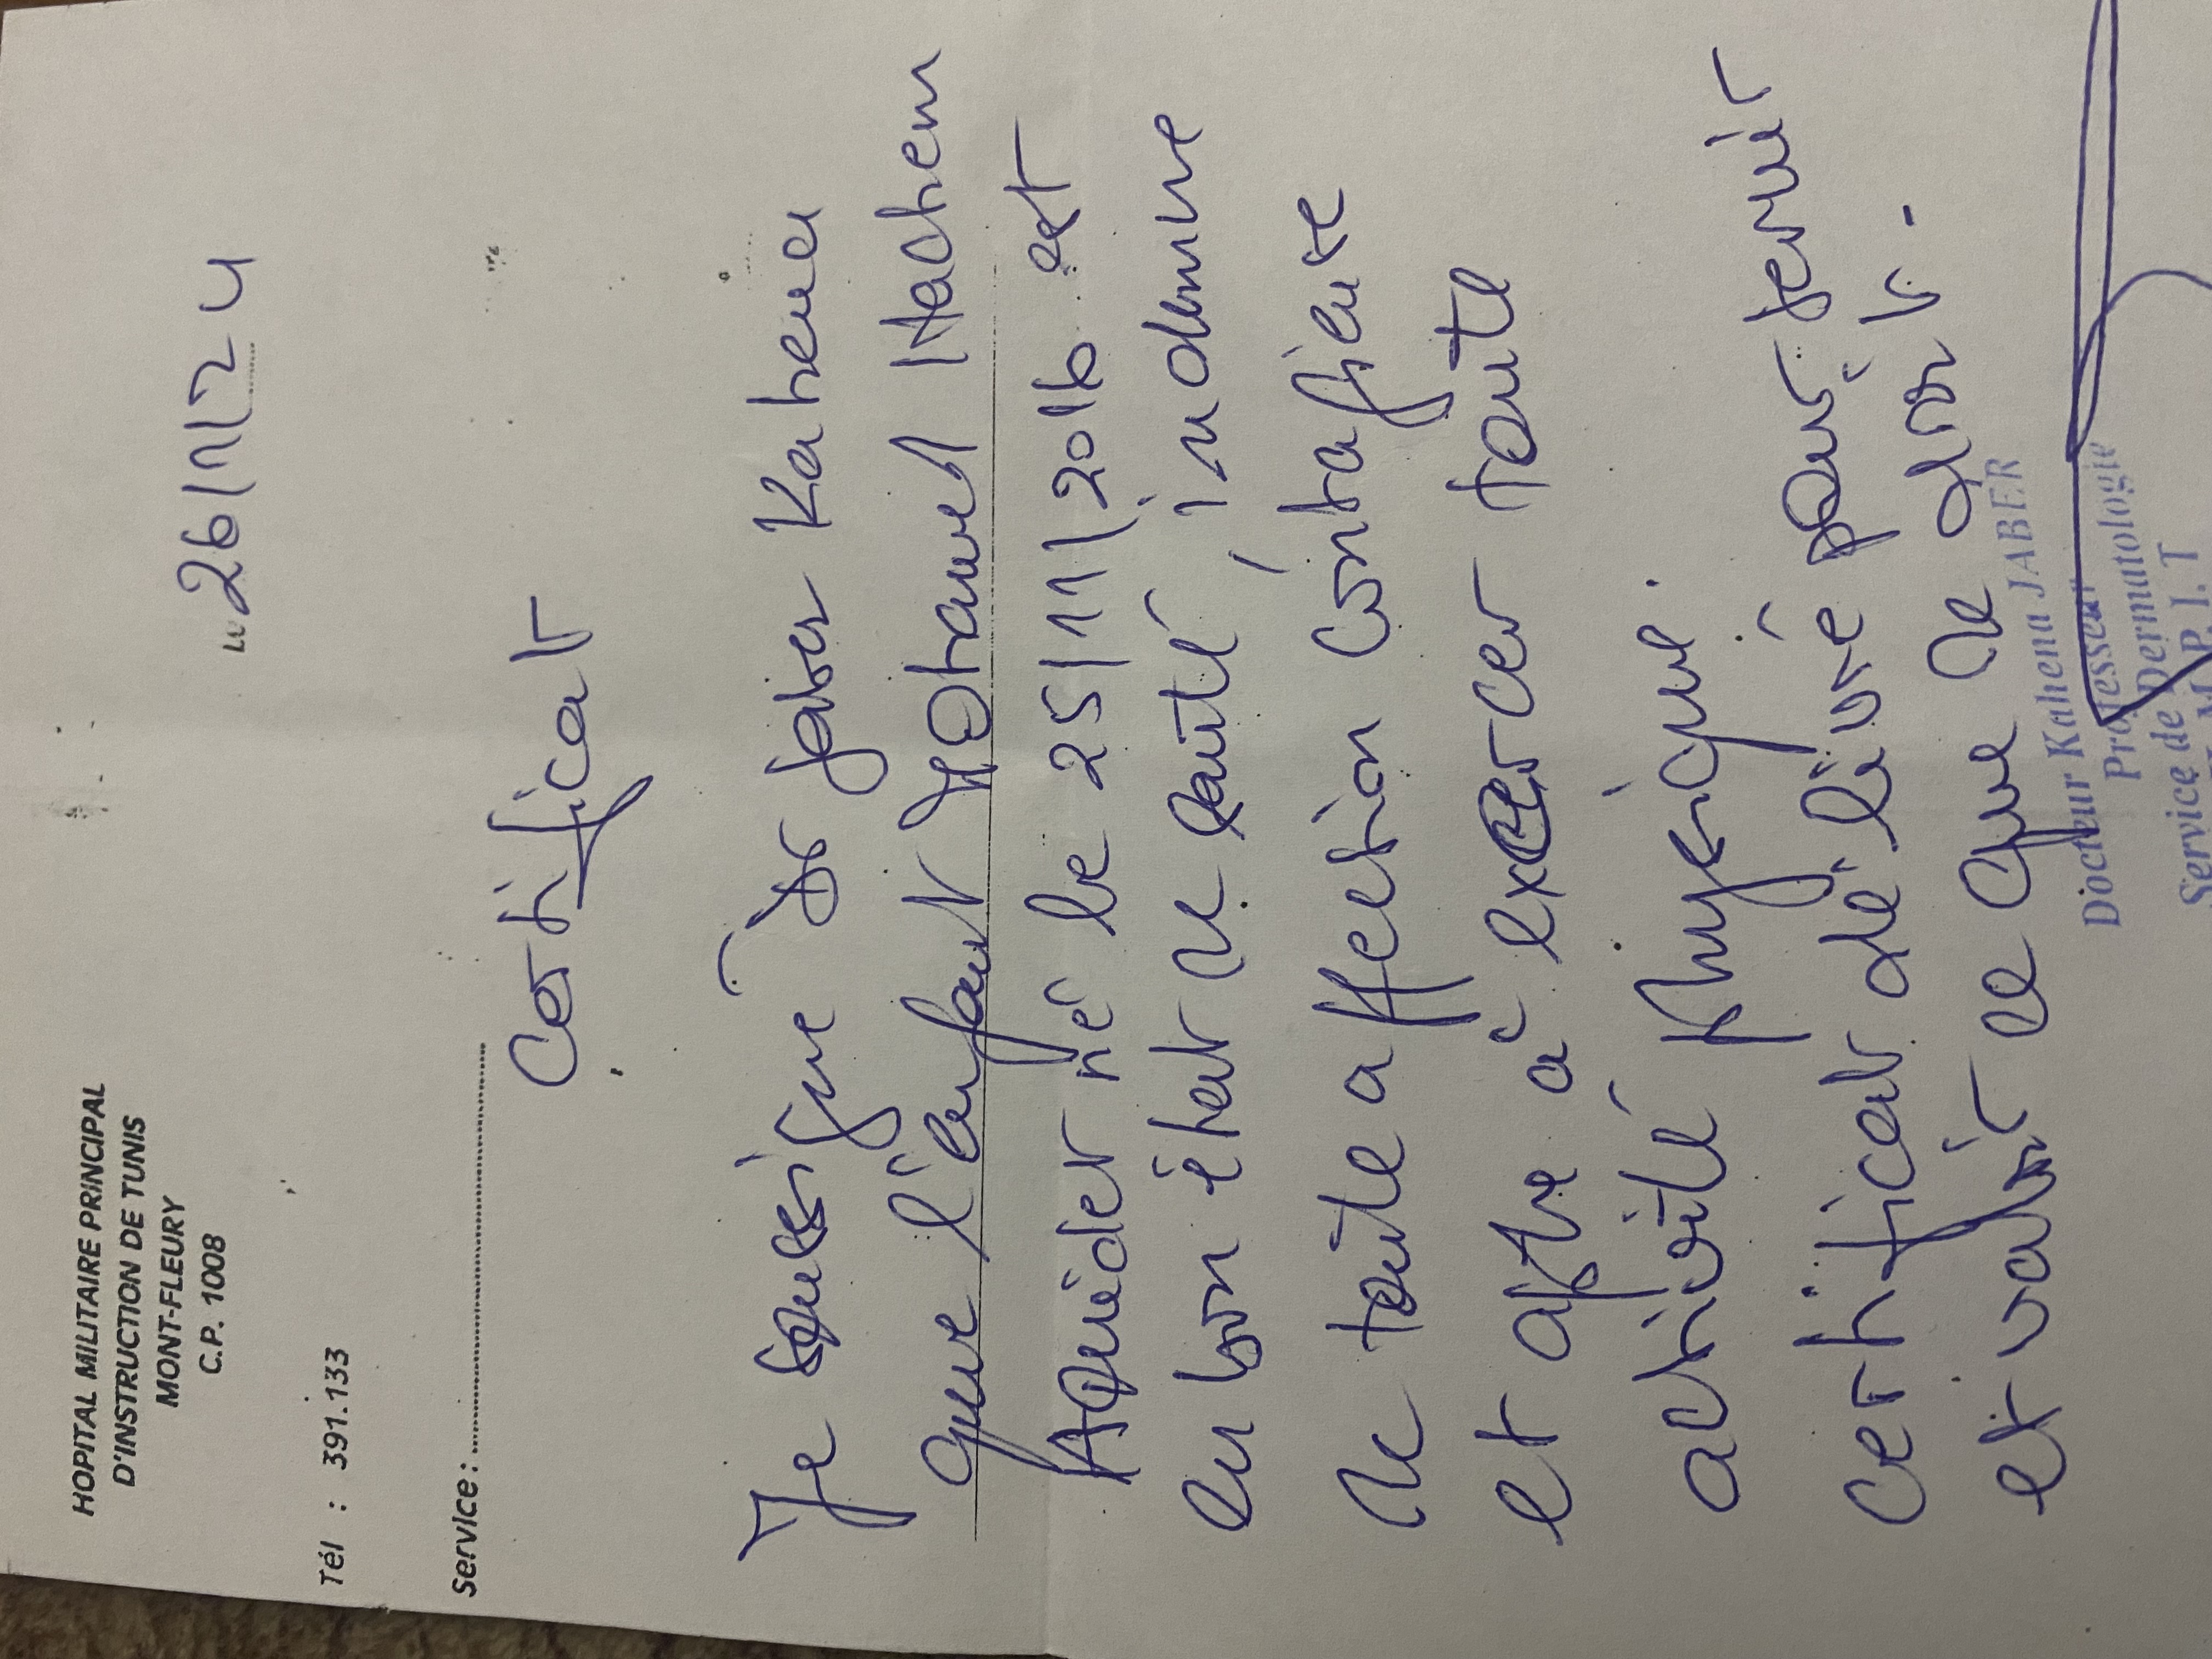 HOPITAL MILITAIRE PRINCIPAL
D'INSTRUCTION DE TUNIS
MONT-FLEURY
C.P. 1008
Le 26/11/24
Tél : 391.133
Service :
Certificat
Je soussigné Dr Jaber Kahena
que l'enfant Mohamed Hachem
Aouider né le 25/11/2016 est
en bon état de santé, indemne
de toute affection contagieuse
et apte à exercer toute
activité physique.
certificat délivré pour servir
et valoir ce que de droit.
Docteur Kahena JABER
Professeur
Service de Dermatologie
H.M.P.I.T